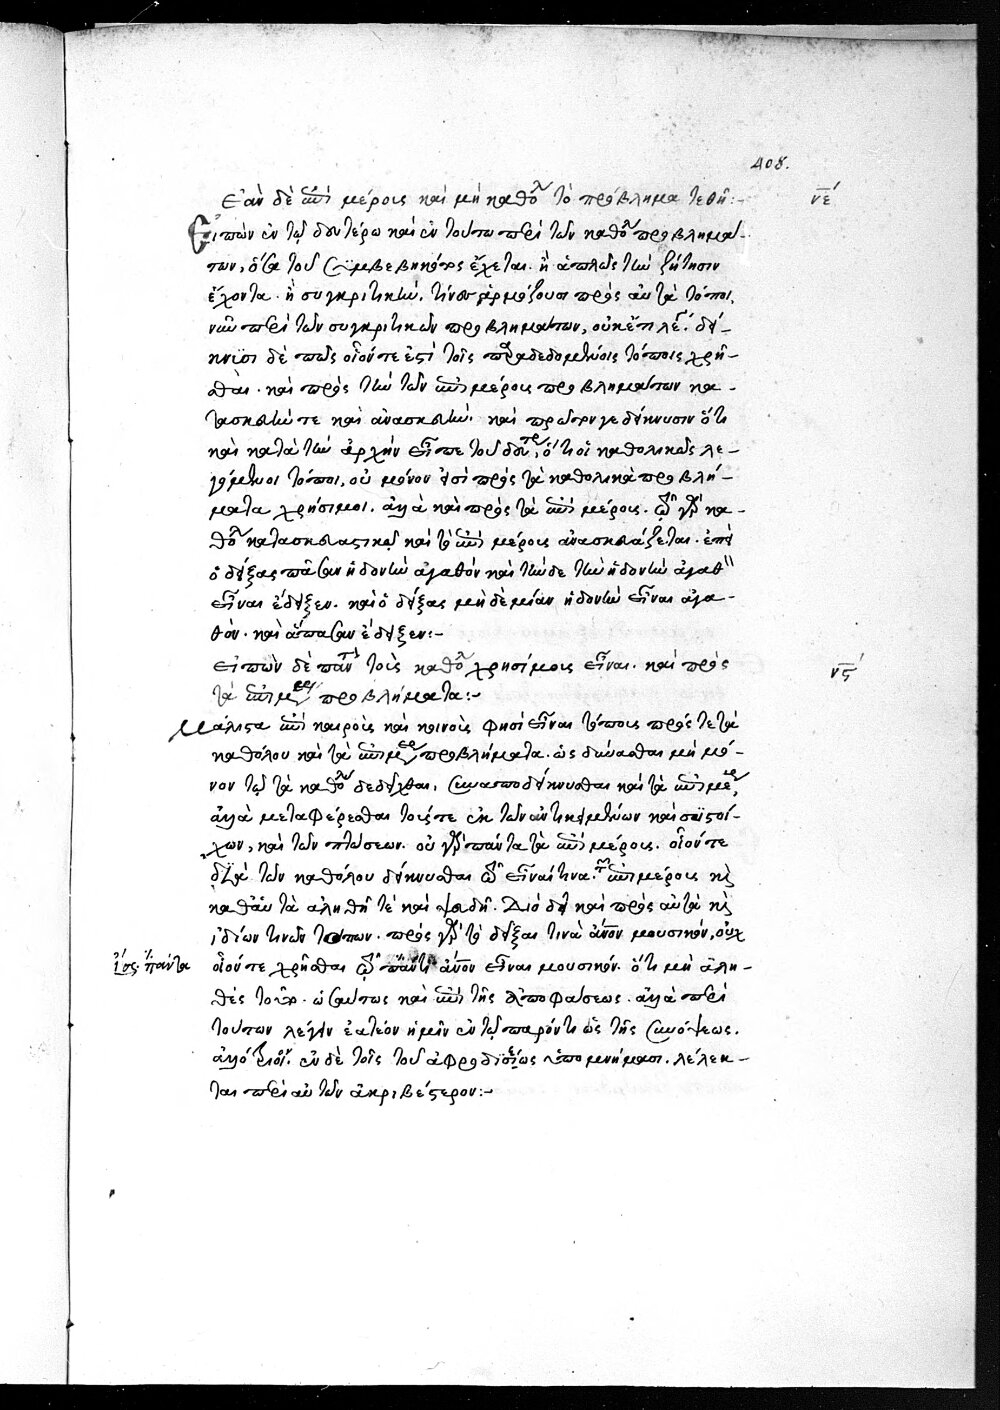 408.
Ἐὰν δὲ ἐπὶ μέρους καὶ μὴ καθόλου τὸ πρόβλημα τεθῆ:- νε
Εἰπὼν ἐν τῷ δευτέρω καὶ ἐν τούτω περὶ τῶν καθόλου προβλημά-
των, ὅσα τοῦ συμβεβηκότος ἔχεται. ἢ ἁπλῶς τὴν ζήτησιν
ἔχοντα. ἢ συγκριτικὴν. τίνες ἁρμόζουσι πρὸς αὐτὰ τόποι.
νῦν περὶ τῶν συγκριτικῶν προβλημάτων, οὐκέτι λέγει. δεί-
κνυσι δὲ πῶς οἷόντε ἐστὶ τοῖς παραδεδομένοις τόποις χρῆ-
σθαι. καὶ πρὸς τὴν τῶν ἐπὶ μέρους προβλημάτων κα-
τασκευήν τε καὶ ἀνασκευήν. καὶ πρῶτόν γε δείκνυσιν ὅτι
καὶ κατὰ τὴν ἀρχὴν εἶπε τοῦ δευτέρου, ὅτι οἱ καθολικῶς λε-
γόμενοι τόποι, οὐ μόνον εἰσὶ πρὸς τὰ καθολικὰ προβλή-
ματα χρήσιμοι. ἀλλὰ καὶ πρὸς τὰ ἐπὶ μέρους. τῷ γὰρ κα-
θόλου κατασκευαστικῷ καὶ τὸ ἐπὶ μέρους ἀνασκευάζεται. ἐπεὶ
ὁ δείξας πᾶσαν ἡδονὴν ἀγαθὸν καὶ τήνδε τὴν ἡδονὴν ἀγαθὴν
εἶναι ἔδειξεν. καὶ ὁ δείξας μηδεμίαν ἡδονὴν εἶναι ἀγα-
θὸν. καὶ ἅπασαν ἔδειξεν:-
Εἰπὼν δὲ πάντας τοὺς καθόλου χρησίμους εἶναι. καὶ πρὸς νς
τὰ ἐπὶ μέρους προβλήματα:-
Μάλιστα ἐπὶ καιροὺς καὶ κοινοὺς φησὶ εἶναι τόπους πρός τε τὰ
καθόλου καὶ τὰ ἐπὶ μέρους προβλήματα. ὡς δύνασθαι μὴ μό-
νον τῷ τὰ καθόλου δεδεῖχθαι, συναποδείκνυσθαι καὶ τὰ ἐπὶ μέρους,
ἀλλὰ μεταφέρεσθαι τούς τε ἐκ τῶν ἀντικειμένων καὶ συστοί-
χων, καὶ τῶν πτώσεων. οὐ γὰρ πάντα τὰ ἐπὶ μέρους. οἷόντε
διὰ τῶν καθόλου δείκνυσθαι τῷ εἶναί τινα. ἐπὶ μέρους καὶ
καθ' αὑτὰ ἀληθῆ τε καὶ ψευδῆ. Διὸ δεῖ καὶ πρὸς αὐτὰ καὶ
ἰδίων τινῶν τόπων. πρὸς γὰρ τὸ δεῖξαι τινὰ ἄνθρωπον μουσικόν, οὐχ
ἴσως. πάντα οἷόντε χρῆσθαι τῷ πάντα ἄνθρωπον εἶναι μουσικόν. ὅτι μὴ ἀλη-
θὲς τοῦτο. ὡσαύτως καὶ ἐπὶ τῆς ἀποφάσεως. ἀλλὰ περὶ
τούτων λέγειν ἐατέον ἡμῖν ἐν τῷ παρόντι ὡς τῆς συνόψεως.
ἀλλότριον. ἐν δὲ τοῖς τοῦ ἀφροδισιέως ὑπομνήμασι. λέλεκ-
ται περὶ αὐτῶν ἀκριβέστερον:-